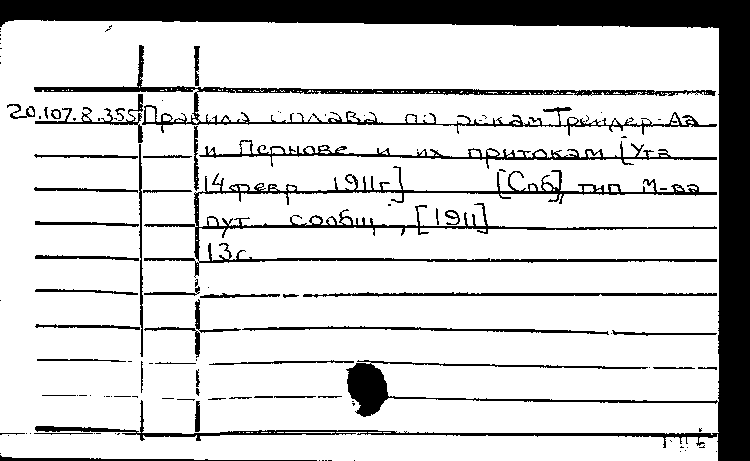 20.107.8.355 Правила сплава по рекам Трейдер-Аа
и Пернове и их притокам. [Утв
14 февр. 1911г.] [Спб], тип М-ва
пут. сообщ., [1911]
13с.